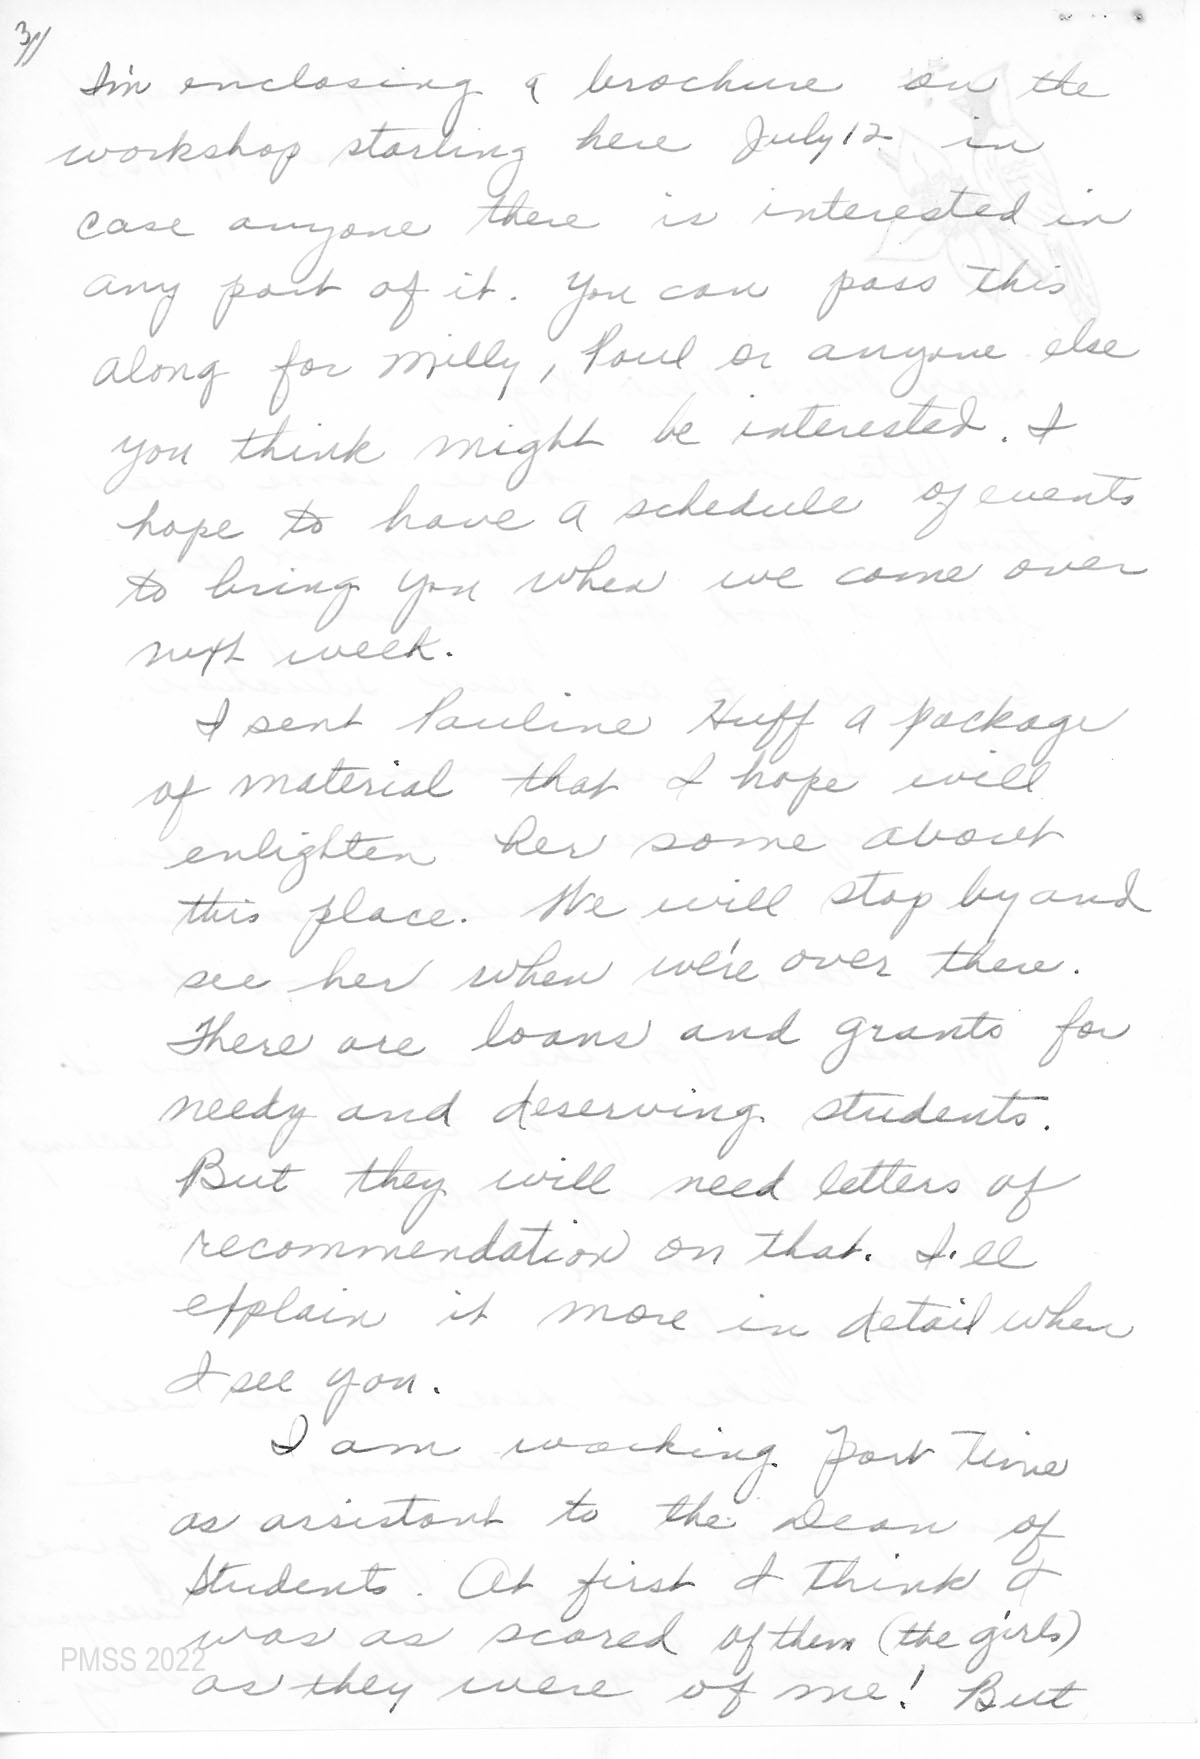 3//
I'm enclosing a brochure on the
workshop starting here July 12 in
case anyone there is interested in
any part of it. You can pass this
along for Milly, Paul or anyone else
you think might be interested. I
hope to have a schedule of events
to bring you when we come over
next week.
I sent Pauline Huff a package
of material that I hope will
enlighten her some about
this place. We will stop by and
see her when we're over there.
There are loans and grants for
needy and deserving students.
But they will need letters of
recommendation on that. I'll
explain it more in detail when
I see you.
I am working part time
as assistant to the Dean of
Students. At first I think I
was as scared of them (the girls)
as they were of me! But
PMSS 2022